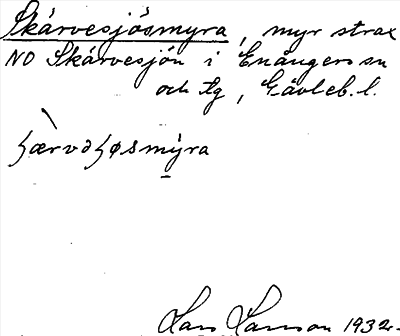 Skärvesjösmyra, myr strax
NO Skärvesjön i Enångers sn
och tg, Gävleb. l.
ʃærvəʃøsmyra
Lars Larsson 1932.